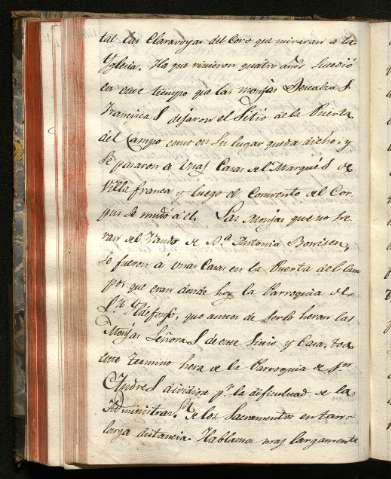 tal las Claravoyas del Coro que miravan a la
Yglesia. Ha que vinieron quatro años. Sucedió
en este tiempo que las monjas
Franciscas dejaron el Sitio de la Puerta
del Campo como en su lugar queda dicho, y
se pasaron a Unas Casas del Marques de
Villafranca y luego el Convento de Cor
pus se mudó a él. Las Monjas que no he
ran del Vando de D.ª Antonia
se fueron à Unas Casas en la Puerta del Cam
po que eran donde hoy la Parroquia de
S.n Ildefonso, que antes de serlo heran las
Monjas Señoras de este Sitio y Casa, toda
este termino hera de la Parroquia de S.n
Andres dividiose p.r la dificultad de la
Administraz.n de los Sacramentos en tan
larga distancia. Hablamos mas largamente